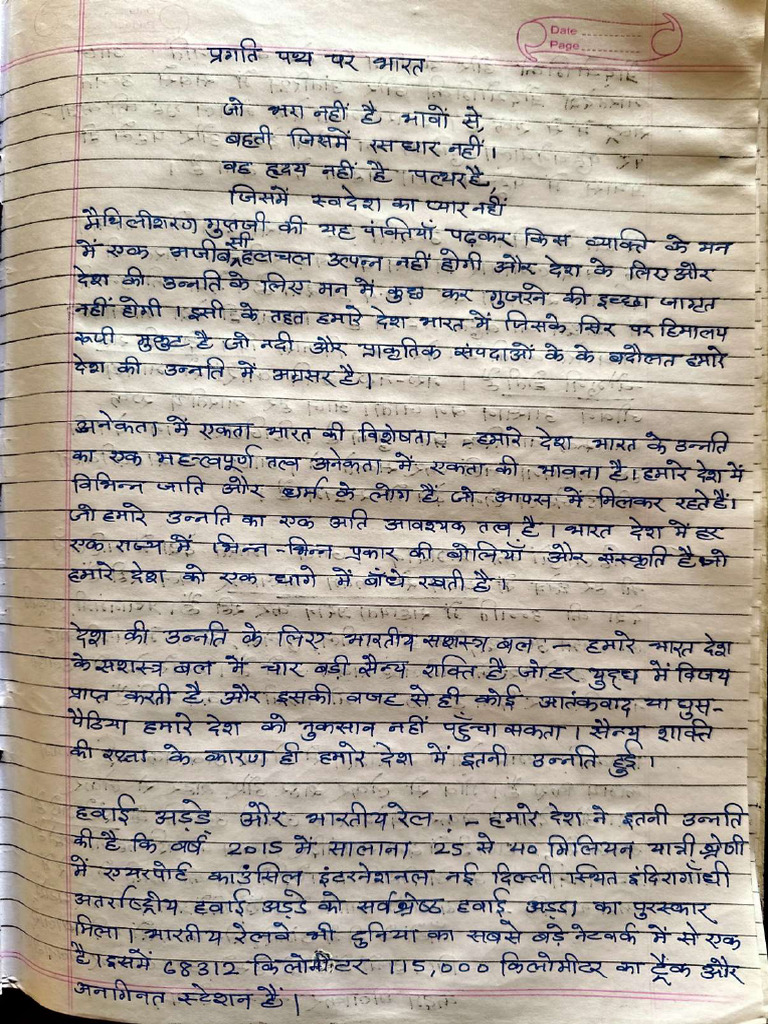 Date
Page
प्रगति पथ पर भारत
जो भरा नहीं है भावों से,
बहती जिसमें रस धार नहीं।
वह हृदय नहीं है पत्थर है,
जिसमें स्वदेश का प्यार नहीं
मैथिलीशरण गुप्तजी की यह पंक्तियाँ पढ़कर किस व्यक्ति के मन
में एक अजीब सी हलचल उत्पन्न नहीं होगी और देश के लिए और
देश की उन्नति के लिए मन में कुछ कर गुजरने की इच्छा जागृत
नहीं होगी। इसी के तहत हमारे देश भारत में जिसके सिर पर हिमालय
रूपी मुकुट है जो नदी और प्राकृतिक संपदाओं के के बदौलत हमारे
देश की उन्नति में अग्रसर है।
अनेकता में एकता भारत की विशेषता :- हमारे देश भारत के उन्नति
का एक महत्वपूर्ण तत्व अनेकता में एकता की भावना है। हमारे देश में
विभिन्न जाति और धर्म के लोग हैं जो आपस में मिलकर रहते हैं।
जो हमारे उन्नति का एक अति आवश्यक तत्व है। भारत देश में हर
एक राज्य में भिन्न-भिन्न प्रकार की बोलियाँ और संस्कृति है जो
हमारे देश को एक धागे में बाँधे रखती है।
देश की उन्नति के लिए भारतीय सशस्त्र बल :- हमारे भारत देश
के सशस्त्र बल में चार बड़ी सैन्य शक्ति है जो हर युद्ध में विजय
प्राप्त करती है और इसकी वजह से ही कोई आतंकवाद या घुस-
पैठिया हमारे देश को नुकसान नहीं पहुँचा सकता। सैन्य शक्ति
की के कारण ही हमारे देश में इतनी उन्नति हुई।
हवाई अड्डे और भारतीय रेल :- हमारे देश ने इतनी उन्नति
की है कि वर्ष 2015 में सालाना 25 से 40 मिलियन यात्री श्रेणी
में एयरपोर्ट काउंसिल इंटरनेशनल नई दिल्ली स्थित इंदिरा गाँधी
अतर्राष्ट्रीय हवाई अड्डे को सर्वश्रेष्ठ हवाई अड्डा का पुरस्कार
मिला। भारतीय रेलवे भी दुनिया का सबसे बड़े नेटवर्क में से एक
है। इसमें 68312 किलोमीटर 115,000 किलोमीटर का ट्रैक और
अनगिनत स्टेशन हैं।